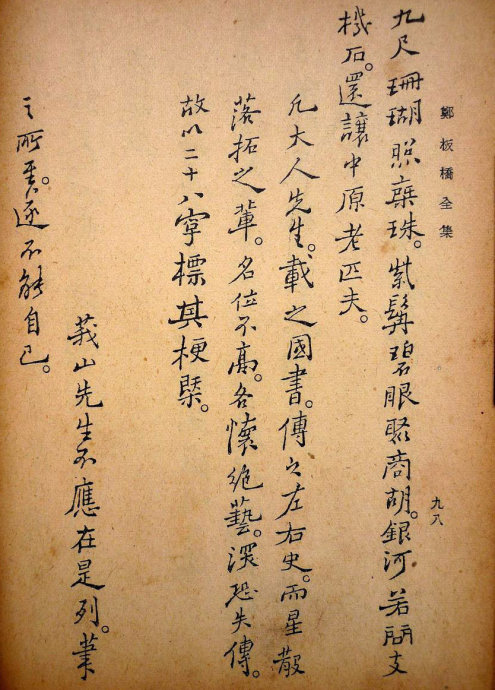 鄭板橋全集
九八
九尺珊瑚照乘珠。紫髯碧眼聚商胡。銀河若問支
機石。還讓中原老匹夫。
凡大人先生。載之國書。傳之左右史。而星散
落拓之輩。名位不高。各懷絕藝。深恐失傳。
故以二十八字標其梗槩。
莪山先生不應在是列。筆
之所至。遂不能自已。